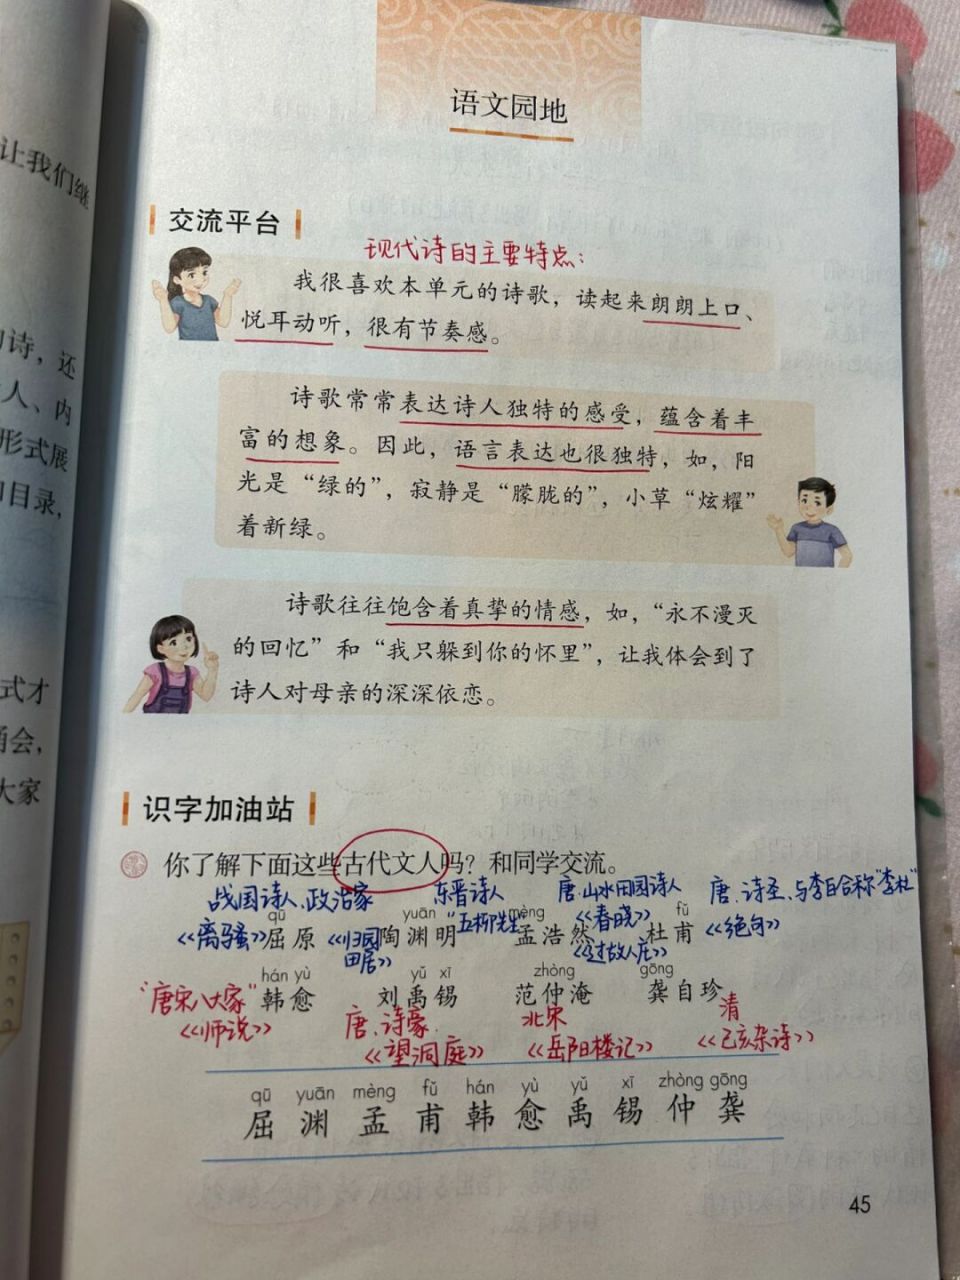 让我们继
诗，还
人、内
形式展
目录，
式才
诵会，
大家
语文园地
交流平台
现代诗的主要特点：
我很喜欢本单元的诗歌，读起来朗朗上口、
悦耳动听，很有节奏感。
诗歌常常表达诗人独特的感受，蕴含着丰
富的想象。因此，语言表达也很独特，如，阳
光是“绿的”，寂静是“朦胧的”，小草“炫耀”
着新绿。
诗歌往往饱含着真挚的情感，如，“永不漫灭
的回忆”和“我只躲到你的怀里”，让我体会到了
诗人对母亲的深深依恋。
识字加油站
你了解下面这些古代文人吗？和同学交流。
战国诗人、政治家 东晋诗人 唐.山水田园诗人 唐.诗圣、与李白合称“李杜”
qū yuān mèng fǔ
《离骚》屈原 《归园田居》陶渊明 “五柳先生” 孟浩然《春晓》《过故人庄》 杜甫《绝句》
hán yù yǔ xī zhòng gōng
“唐宋八大家”韩愈 刘禹锡 范仲淹 龚自珍
《师说》 唐.诗豪 北宋 清
《望洞庭》 《岳阳楼记》 《己亥杂诗》
qū yuān mèng fǔ hán yù yǔ xī zhòng gōng
屈 渊 孟 甫 韩 愈 禹 锡 仲 龚
45